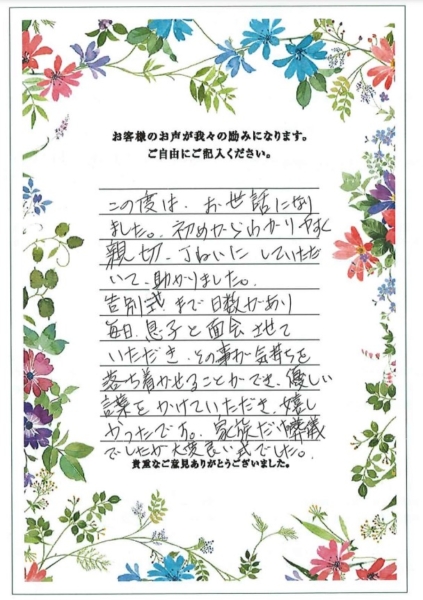 お客様のお声が我々の励みになります。
ご自由にご記入ください。
この度は、お世話になり
ました。初めからわかりやすく
親切、丁ねいにしていただ
いて、助かりました。
告別式まで日数があり
毎日、息子と面会させて
いただき、その事が気持ちを
落ち着かせることができ、優しい
言葉をかけていただき、嬉し
かったです。家族だけの葬儀
でしたが大変良い式でした。
貴重なご意見ありがとうございました。